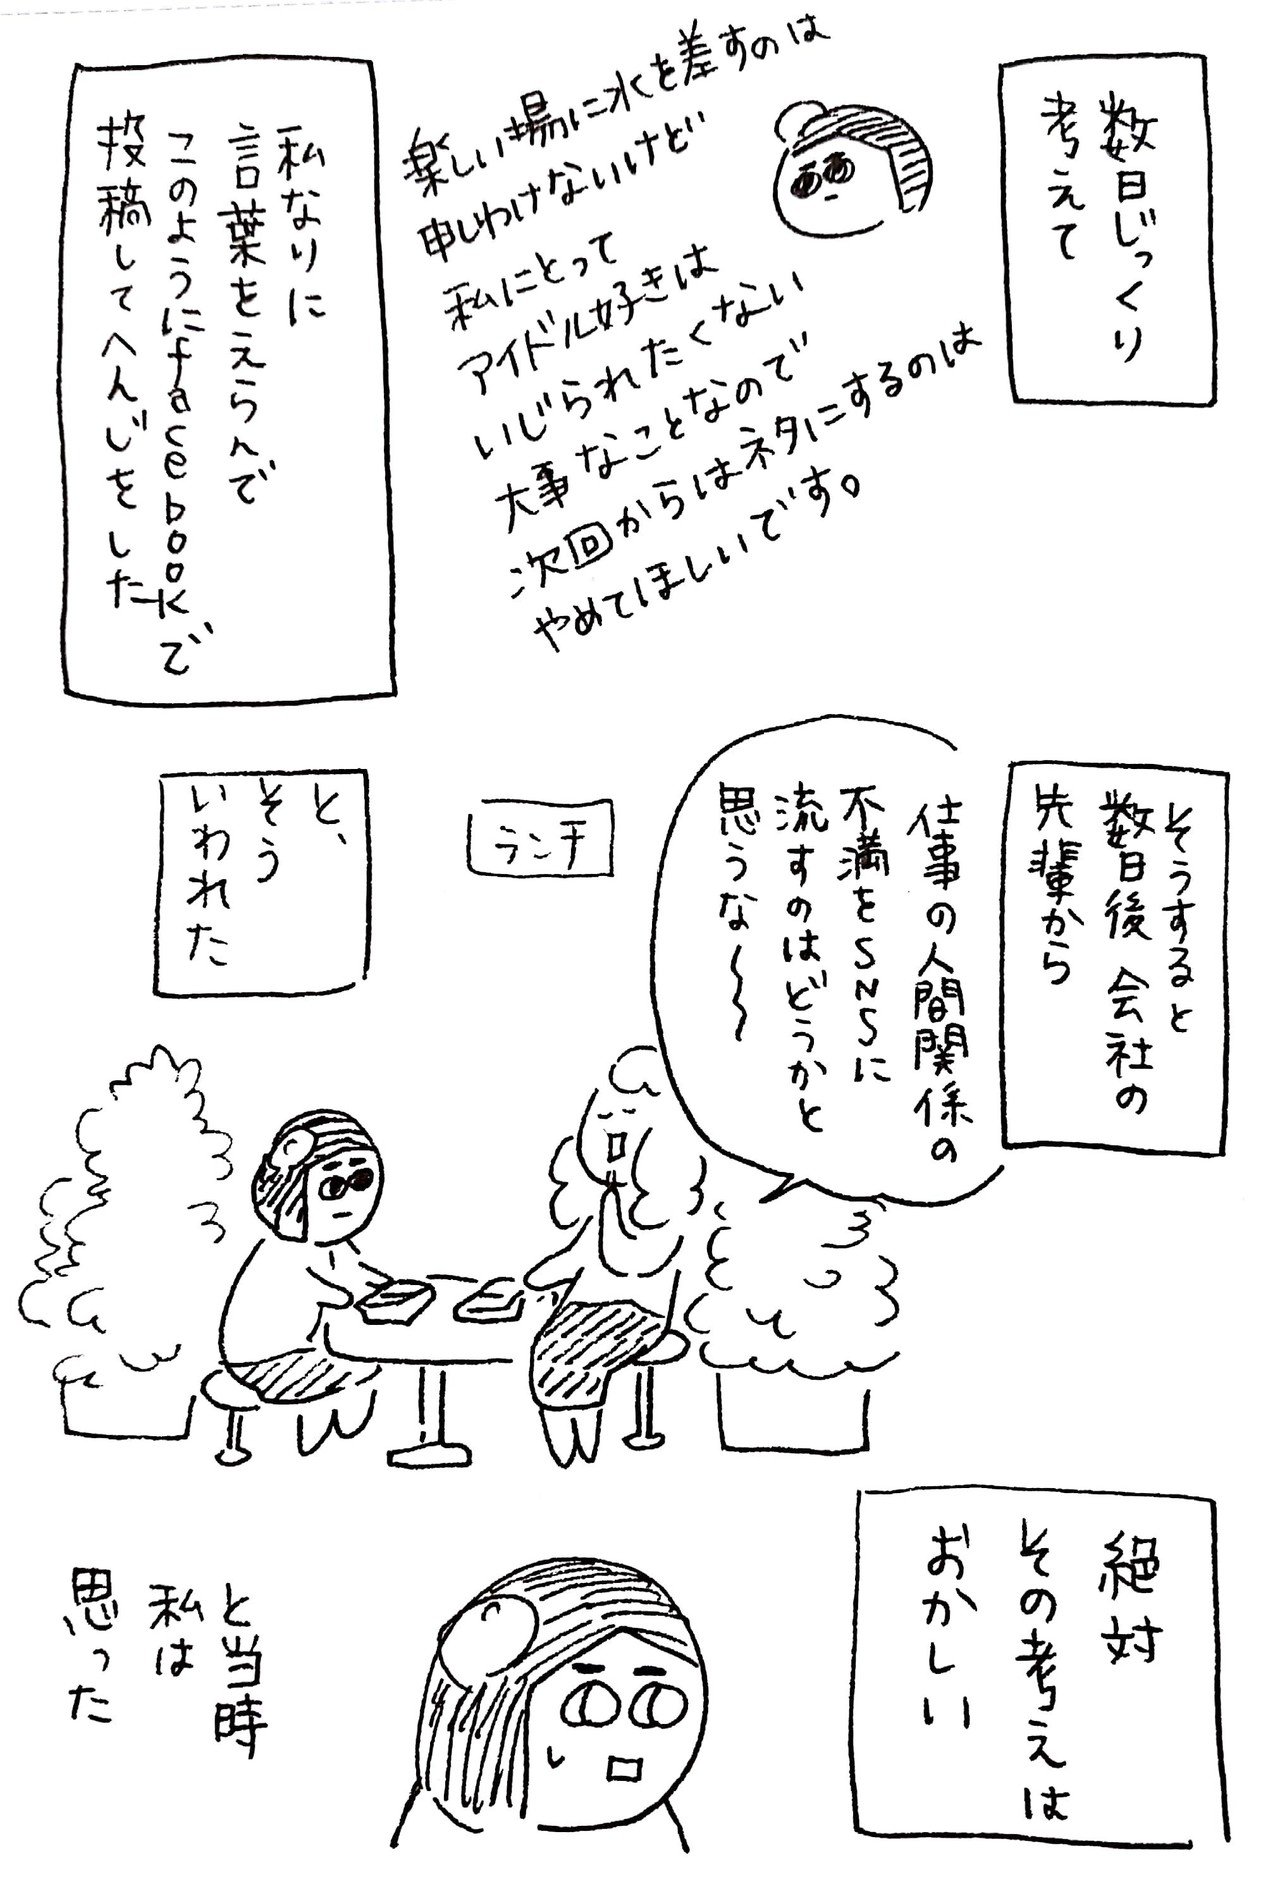 数日じっくり
考えて
楽しい場に水を差すのは
申しわけないけど
私にとって
アイドル好きは
いじられたくない
大事なことなので
次回からはネタにするのは
やめてほしいです。
私なりに
言葉をえらんで
このようにfacebookで
投稿してへんじをした
そうすると
数日後会社の
先輩から
仕事の人間関係の
不満をSNSに
流すのはどうかと
思うな〜〜
ランチ
と、
そう
いわれた
絶対
その考えは
おかしい
と当時
私は
思った